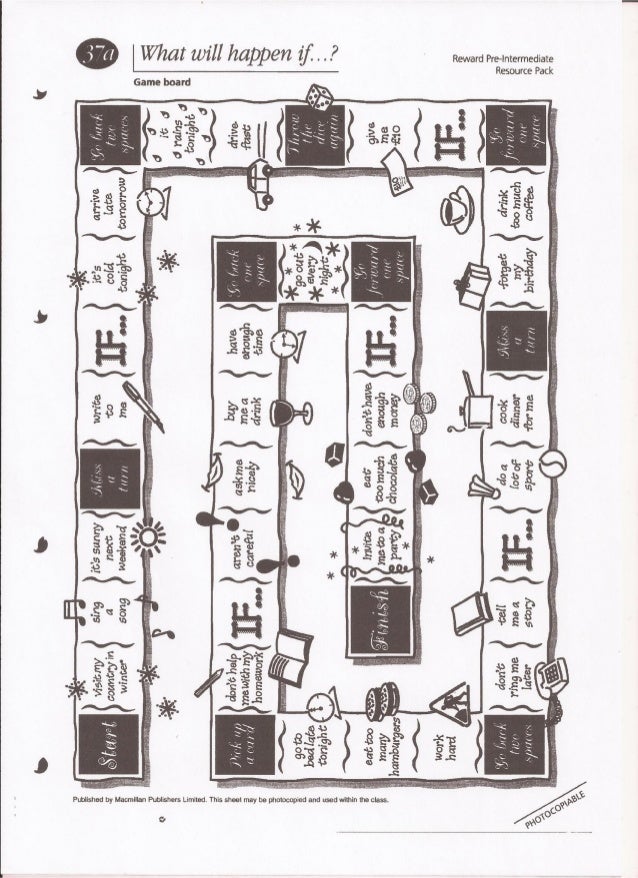 37a
What will happen if...?
Reward Pre-Intermediate
Resource Pack
Game board
Start
visit my
country in
winter
sing
a
song
it's sunny
next
weekend
Miss
a
turn
write
to
me
IF...
it's
cold
tonight
arrive
late
tomorrow
Go back
two
spaces
it
rains
tonight
drive
fast
Throw
the
dice
again
give
me
£10
IF...
Go
forward
one
space
drink
too much
coffee
forget
my
birthday
Miss
a
turn
cook
dinner
for me
do a
lot of
sport
IF...
tell
me a
story
don't
ring me
later
Go back
two
spaces
work
hard
eat too
many
hamburgers
go to
bed late
tonight
Pick up
a card
don't help
me with my
homework
IF...
aren't
careful
ask me
nicely
buy
me a
drink
have
enough
time
Go back
one
space
go out
every
night
Go
forward
one
space
IF...
don't have
enough
money
eat
too much
chocolate
invite
me to a
party
Finish
£10
Published by Macmillan Publishers Limited. This sheet may be photocopied and used within the class.
PHOTOCOPIABLE